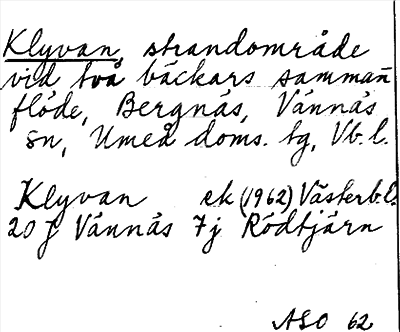 Klyvan, strandområde
vid två bäckars samman̄
flöde, Bergnäs, Vännäs
sn, Umeå doms. tg, Vb. l.
Klyvan ek (1962) Västerb. l.
20 J Vännäs 7j Rödtjärn
ASO 62